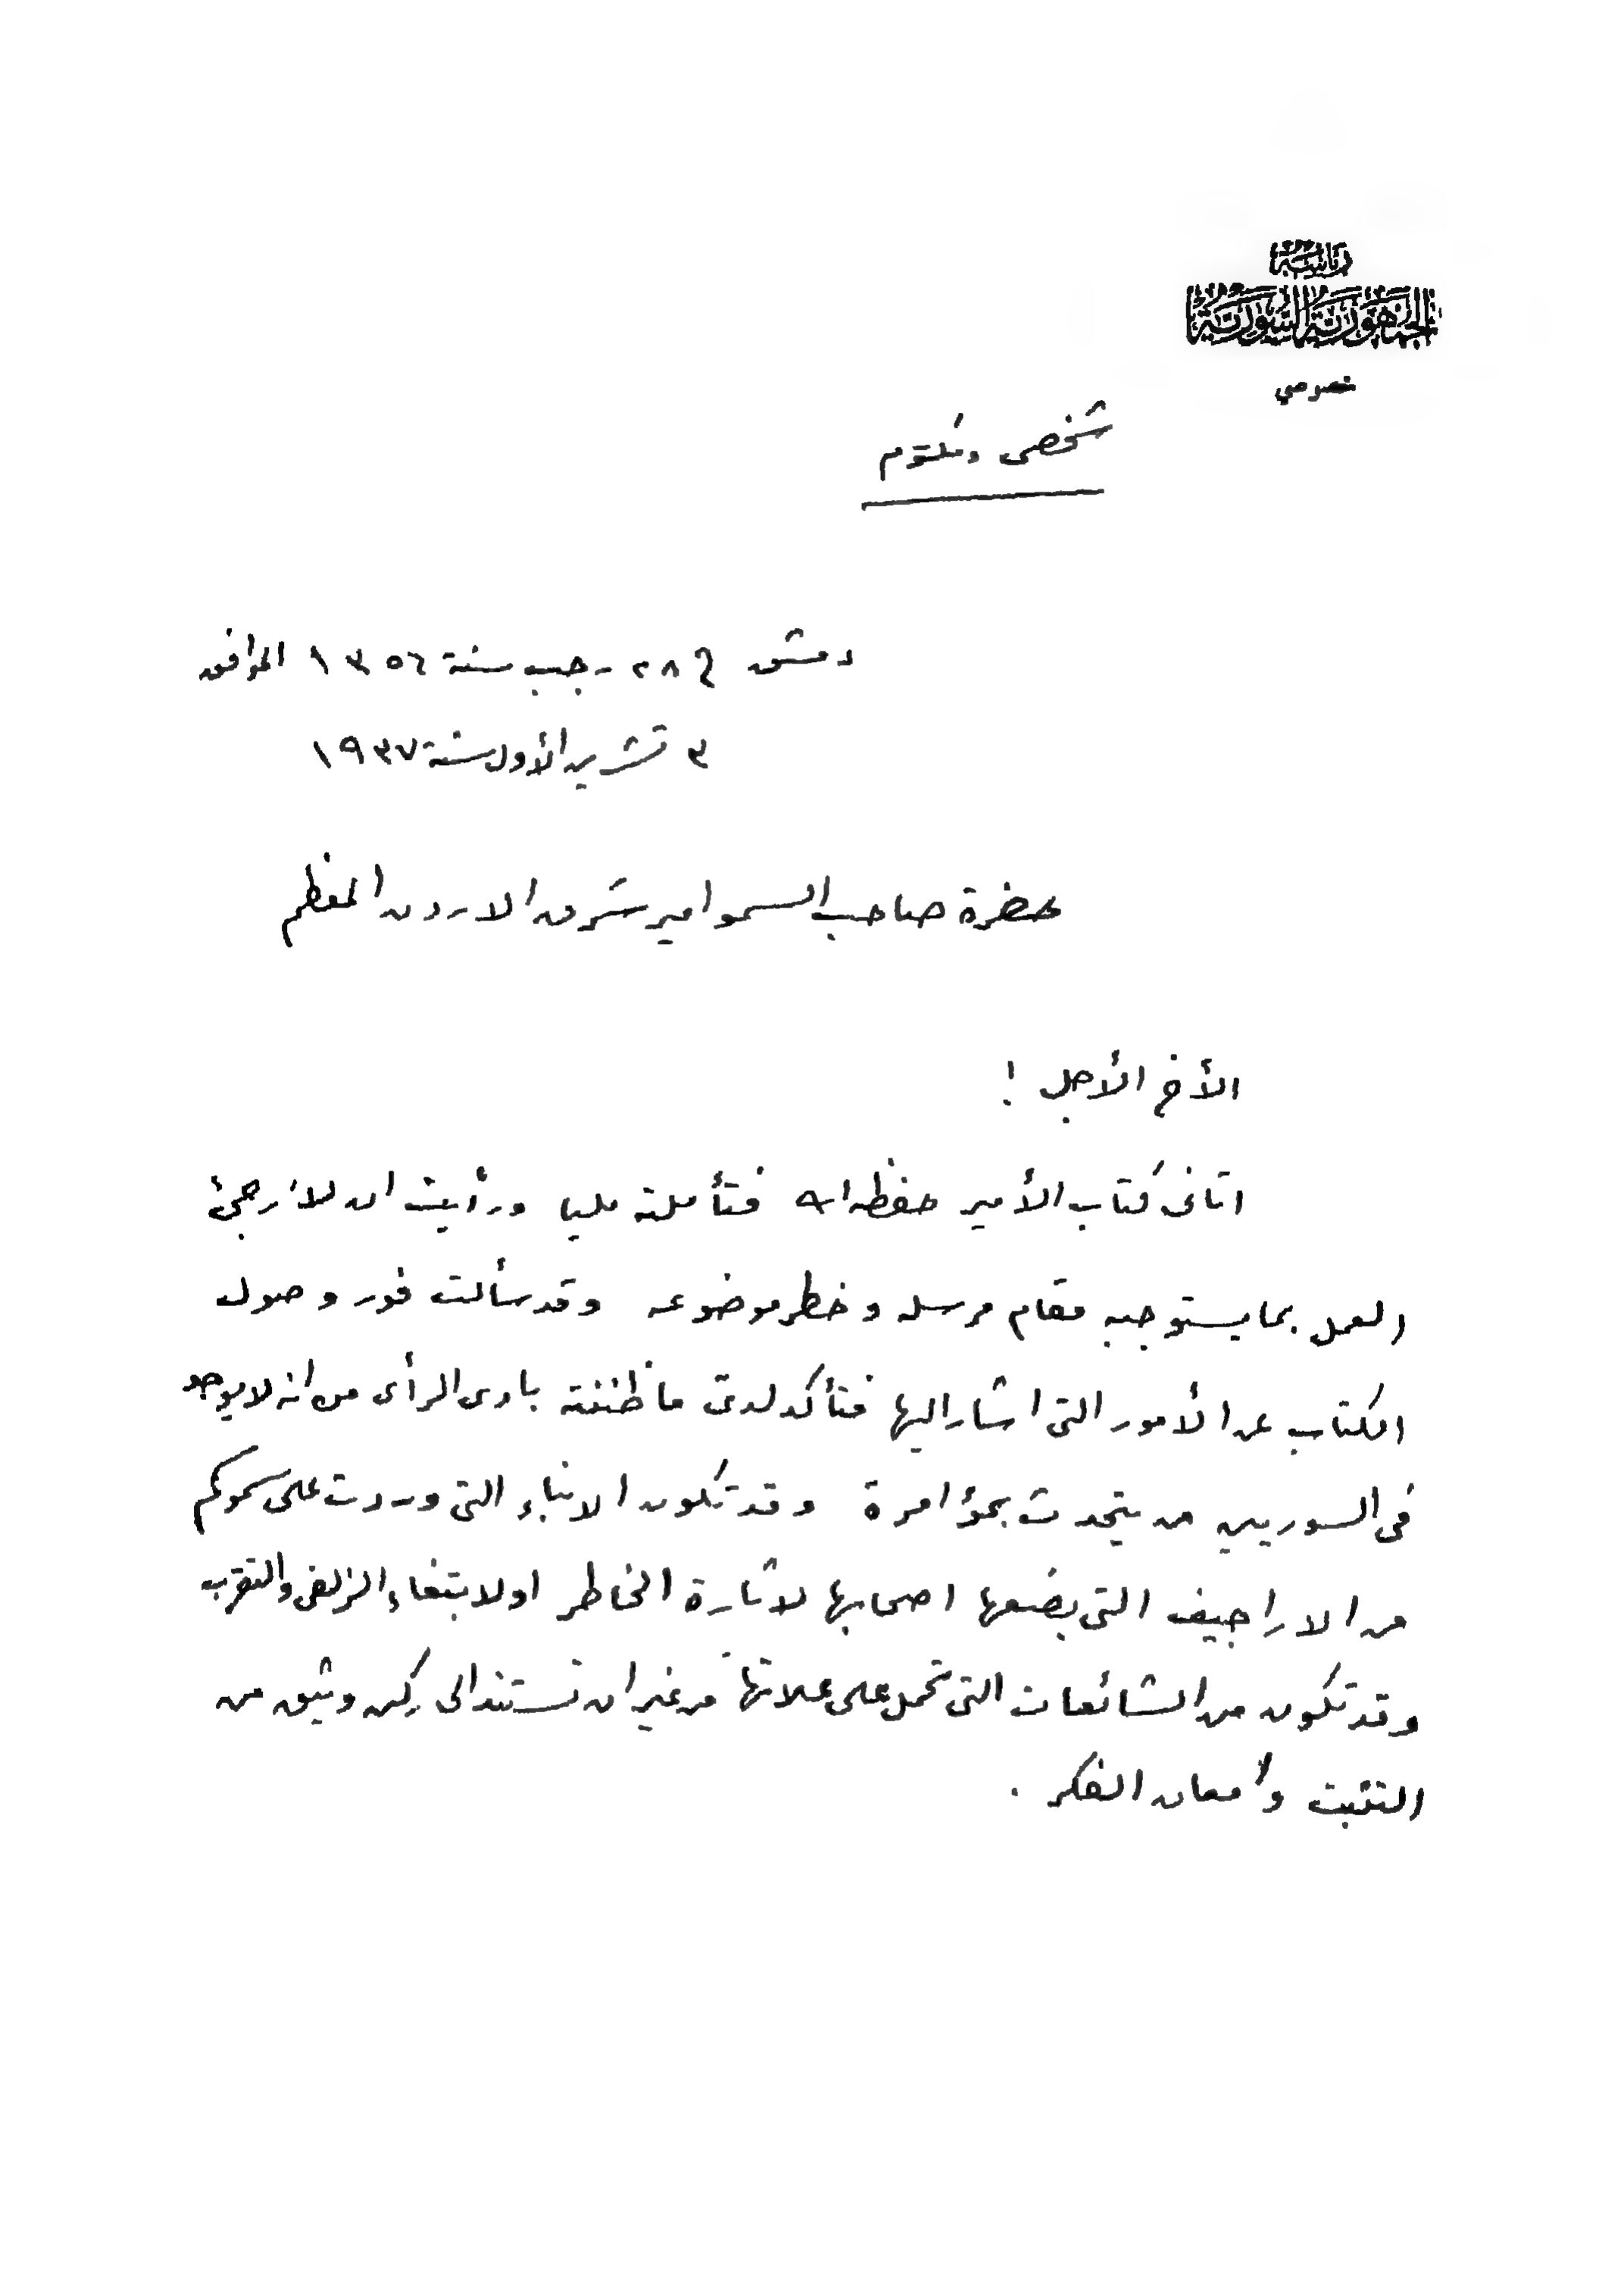 رئاسة
الجمهورية السورية
خصوصي
شخصي ومكتوم
دمشق في ٢٨ رجب سنة ١٣٥٦ الموافق
٣ تشرين الأول سنة ١٩٣٧
حضرة صاحب السمو امير شرق الاردن المعظم
الأخ الأجل !
اتاني كتاب الأمير حفظه الله فتأملته مليا ورأيت ان لا ارجئ
العمل بما يستوجبه مقام مرسله وخطر موضوعه وقد سألت فور وصول
الكتاب عن الأمور التي اشار اليها فتأكد لدي ما ظننته بادى الرأى من انه لا يوجد
في السوريين من يتحدث بمؤامرة وقد تكون الانباء التي وردت على سموكم
من الاراجيف التي يضعها اصحابها لاثارة الخاطر او لابتغاء الزلفى والتقرب
وقد تكون من الشائعات التي تحمل على علاتها من غير ان تستند الى ركن وثيق من
التثبت وأمعان الفكر .